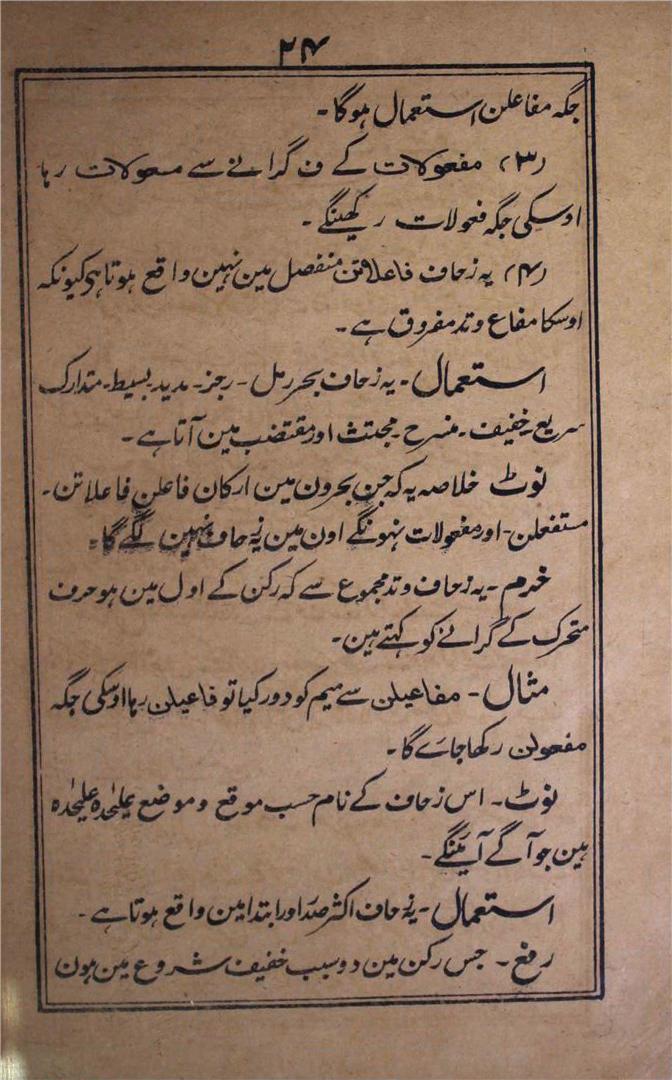 ۲۴
جگہ مفاعلن استعمال ہوگا۔
(۳) مفعولات کے ف گرانے سے معولات رہا
اوسکی جگہ فعولات رکھینگے۔
(۴) یہ زحاف فاعلاتن منفصل مین نہین واقع ہوتا ہی کیونکہ
اوسکا مفاع وتد مفروق ہے۔
استعمال۔ یہ زحاف بحر رمل۔ رجز۔ مدید بسیط۔ متدارک
سریع۔ خفیف۔ منسرح۔ مجتث اور مقتضب مین آتا ہے۔
نوٹ خلاصہ یہ کہ جن بحرون مین ارکان فاعلن فاعلاتن۔
مستفعلن۔ اور مفعولات نہونگے اون مین یہ زحاف نہین لگے گا۔
خرم۔ یہ زحاف وتد مجموع سے کہ رکن کے اول مین ہو حرف
متحرک کے گرانے کو کہتے ہین۔
مثال۔ مفاعیلن سے میم کو دور کیا تو فاعیلن رہا اوسکی جگہ
مفعولن رکھا جاے گا۔
نوٹ۔ اس زحاف کے نام حسب موقع و موضع علیٰحدہ علیٰحدہ
ہین جو آگے آئینگے۔
استعمال۔ یہ زحاف اکثر صدر اور ابتدا مین واقع ہوتا ہے۔
رفع۔ جس رکن مین دو سبب خفیف شروع مین ہون